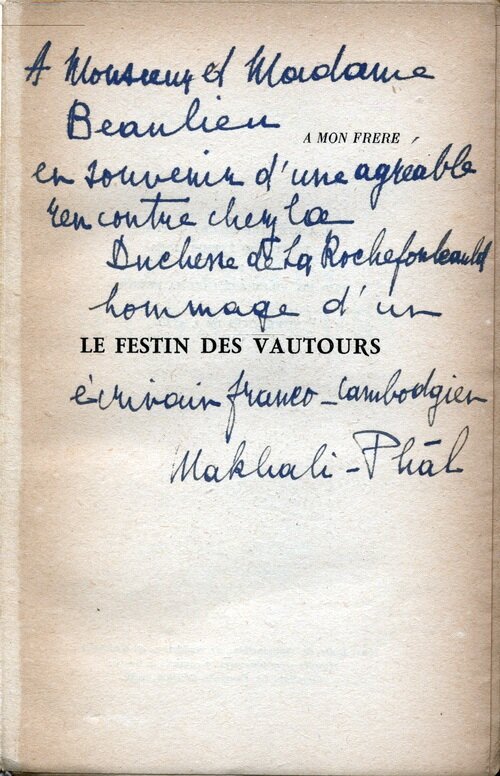 A Monsieur et Madame
Beaulieu
A MON FRERE
en souvenir d'une agréable
rencontre chez la
Duchesse de La Rochefoucauld
hommage d'un
LE FESTIN DES VAUTOURS
écrivain franco-cambodgien
Makhali-Phāl